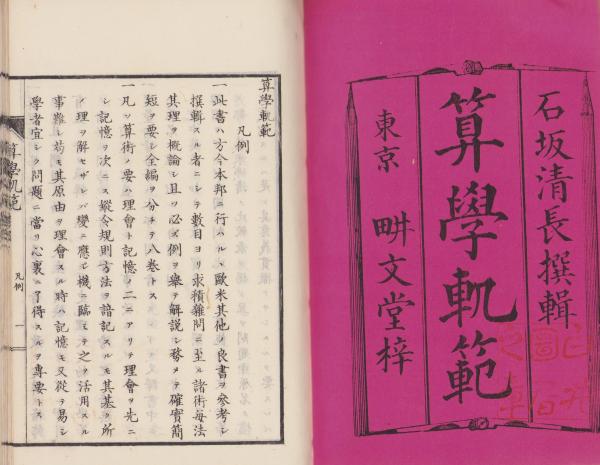 石坂清長撰輯
算學軌範
東京 畊文堂梓
算學軌範
凡例
一此書ハ方今本邦ニ行ハルヽ歐米其他ノ良書ヲ參考シ
撰輯スル者ニシテ數目ヨリ求積雜問ニ至ル諸術毎法
其理ヲ概論シ且ツ必ズ例ヲ舉テ解說シ務メテ確實簡
短ヲ要シ全編ヲ分チテ八卷トス
一凡ソ算術ノ要ハ理會ト記憶ノ二ニアリテ理會ヲ先ニ
シ記憶ヲ次ニス縱令規則方法ヲ諳記スルモ其基ク所
ノ理ヲ解セザレバ變ニ應シ機ニ臨ミテ之ヲ活用スル
事難シ苟モ其原由ヲ理會スル時ハ記憶モ又從テ易シ
學者宜シク問題ニ當リ心裏ニ了得スルヲ專要トス
算學軌範
凡例
一